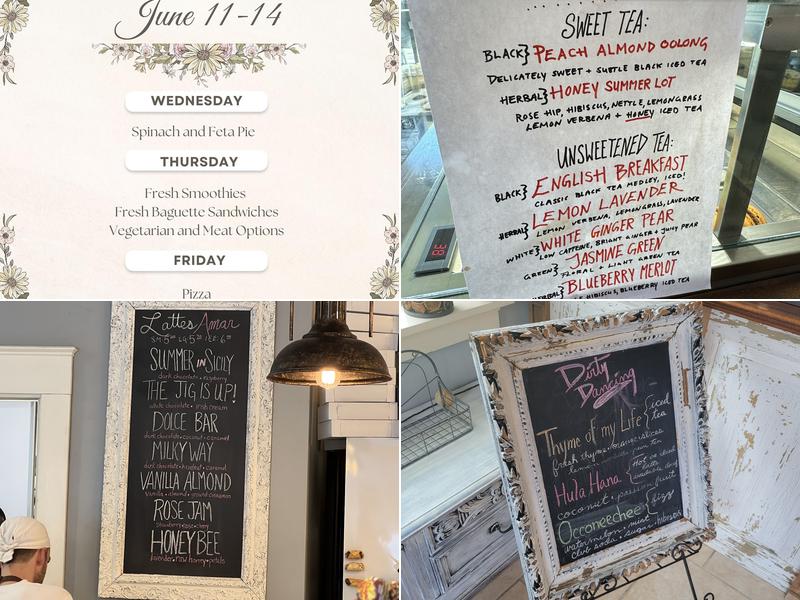 June 11-14
WEDNESDAY
Spinach and Feta Pie
THURSDAY
Fresh Smoothies
Fresh Baguette Sandwiches
Vegetarian and Meat Options
FRIDAY
Pizza
SWEET TEA:
BLACK} PEACH ALMOND OOLONG
DELICATELY SWEET + SUBTLE BLACK ICED TEA
HERBAL} HONEY SUMMER LOT
ROSE HIP, HIBISCUS, NETTLE, LEMONGRASS
LEMON VERBENA + HONEY ICED TEA
UNSWEETENED TEA:
BLACK} ENGLISH BREAKFAST
CLASSIC BLACK TEA MEDLEY, ICED!
HERBAL} LEMON LAVENDER
LEMON VERBENA, LEMONGRASS, LAVENDER
WHITE} WHITE GINGER PEAR
LOW CAFFEINE, BRIGHT GINGER + JUICY PEAR
GREEN} JASMINE GREEN
FLORAL + LIGHT GREEN TEA
HERBAL} BLUEBERRY MERLOT
HIBISCUS, BLUEBERRY ICED TEA
Lattes Amar
SM: 5.00 LG: 5.50 ICE: 6.00
SUMMER IN SICILY
dark chocolate • raspberry
THE JIG IS UP!
white chocolate • irish cream
DOLCE BAR
dark chocolate • coconut • caramel
MILKY WAY
dark chocolate • hazelnut • caramel
VANILLA ALMOND
Vanilla • almond • ground cinnamon
ROSE JAM
strawberry • rose •
HONEYBEE
lavender • raw honey • petals
Dirty
Dancing
Thyme of my Life { iced
tea
fresh thyme • orange slices
Hula Hana { Hot or iced
latte
coconut • passion fruit
Occoneechee { fizz
watermelon • mint
club soda • sugar • hibiscus